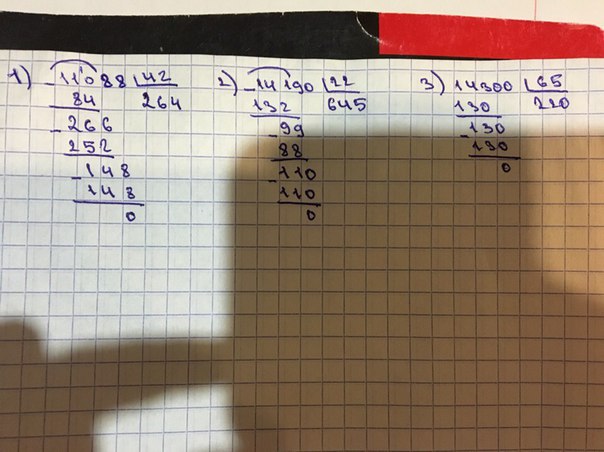 1) -11088 42
84 264
-266
252
-148
148
0
2) -14190 22
132 645
-99
88
-110
110
0
3) 14300 65
130 220
-130
130
0